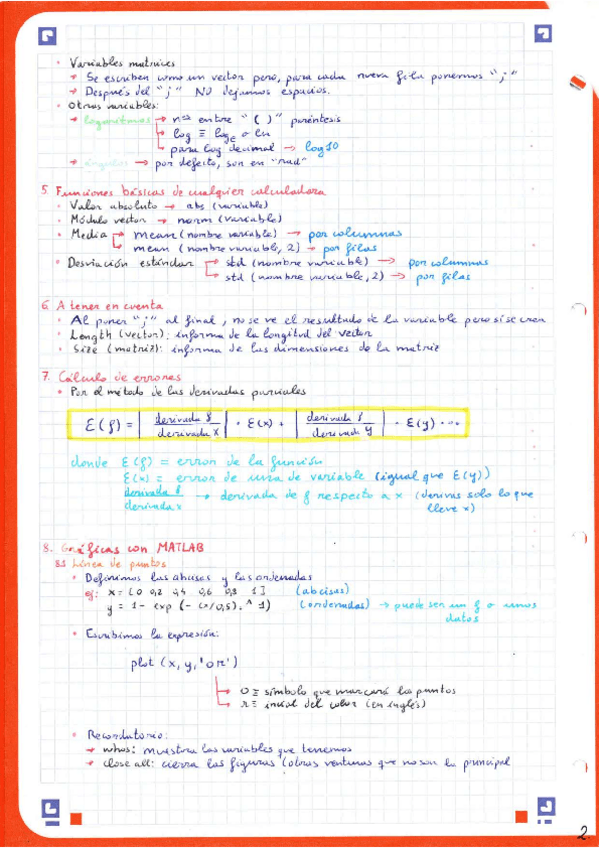 · Variables matrices
→ Se escriben como un vector pero, para cada nueva fila ponemos ";"
→ Después del ";" NO dejamos espacios.
· Otras variables:
→ logaritmos → nº entre "( )" paréntesis
→ log ≡ logₑ o ln
→ para log decimal → log10
→ ángulos → por defecto, son en "rad"
5. Funciones básicas de cualquier calculadora
· Valor absoluto → abs (variable)
· Módulo vector → norm (variable)
· Media → mean (nombre variable) → por columnas
→ mean (nombre variable, 2) → por filas
· Desviación estándar → std (nombre variable) → por columnas
→ std (nombre variable, 2) → por filas
6. A tener en cuenta
· Al poner ";" al final, no se ve el resultado de la variable pero sí se crea
· Length (vector): informa de la longitud del vector
· Size (matriz): informa de las dimensiones de la matriz
7. Cálculo de errores
· Por el método de las derivadas parciales
E(f) = | derivada f / derivada x | · E(x) + | derivada f / derivada y | · E(y) ...
donde E(f) = error de la función
E(x) = error de una de variable (igual que E(y))
derivada f / derivada x → derivada de f respecto a x (derivas solo lo que
lleve x)
8. Gráficas con MATLAB
8.1 Línea de puntos
· Definimos las abcisas y las ordenadas
ej: x = [0 0,2 0,4 0,6 0,8 1] (abcisas)
y = 1 - exp (- (x/0,5).^ 1) (ordenadas) → puede ser un f o unos
datos
· Escribimos la expresión:
plot (x, y, 'or')
→ O ≡ símbolo que marcará los puntos
→ r ≡ inicial del color (en inglés)
· Recordatorio:
→ whos: muestra las variables que tenemos
→ close all: cierra las figuras (otras ventanas que no son la principal
2.